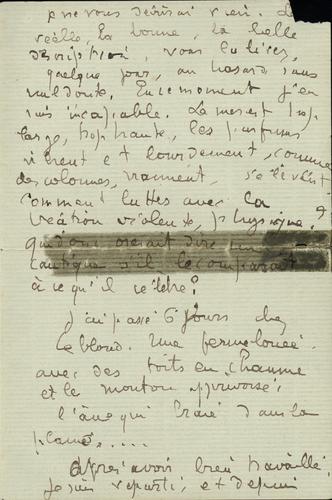 je ne vous décrirai rien. La
réelle, la bonne, la belle
description, vous la lirez,
quelque jour, au hasard sans
nul doute. En ce moment j'en
suis incapable. La mer est trop
large, trop haute, les parfums
vibrent et lourdement, comme
des colonnes, vraiment, s'élèvent
comment luttes avec la
création violente, physique?
qui donc oserait dire un
cantique s'il le comparait
à ce qu'il célèbre?
J'ai passé 6 jours chez
Leblond. Une ferme louée
avec des toits en chaume
et le mouton apprivoisé,
l'âne qui braie dans la
plaine.....
Après avoir bien travaillé
je suis reparti, et depuis